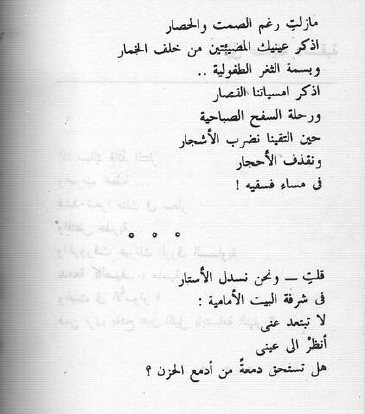 مازلتِ رغم الصمت والحصار
اذكر عينيك المضيئتين من خلف الخمار
وبسمة الثغر الطفولية ..
اذكر امسياتنا القصار
ورحلة السفح الصباحية
حين التقينا نضرب الأشجار
ونقذف الأحجار
فى مساء فسقيه !
قلتِ – ونحن نسدل الأستار
فى شرفة البيت الأمامية :
لا تبتعد عنى
أنظرْ الى عينى
هل تستحق دمعةً من أدمع الحزن ؟